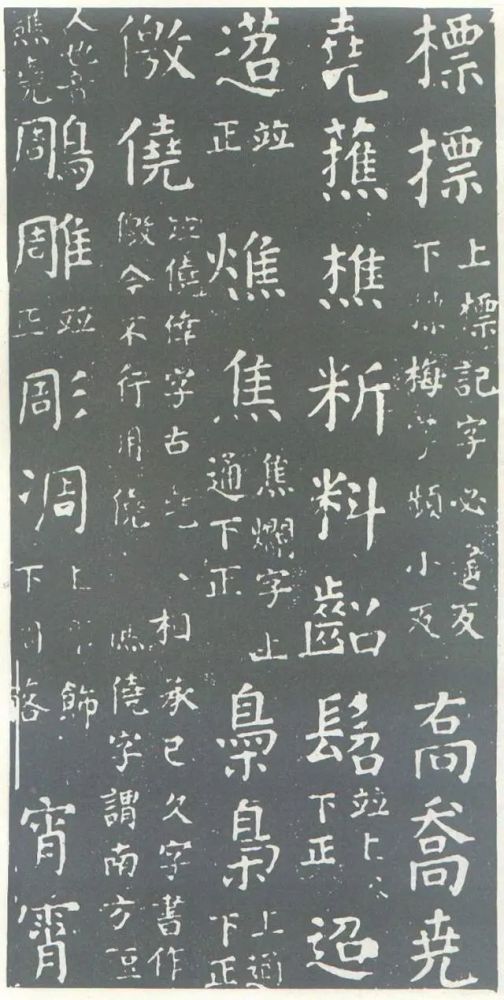 標摽上標記字必遙反下摽梅字頻小反喬尭
堯蕉樵䉼料齠髫並上俗下正迢
迢並正燋焦焦爛字上通下正梟梟上通下正
儌僥並僥倖字古堯反相承已久字書作儌今不行用僥
僬僥字謂南方
人也音鵰雕並正彫凋上彫飾下凋落宵霄